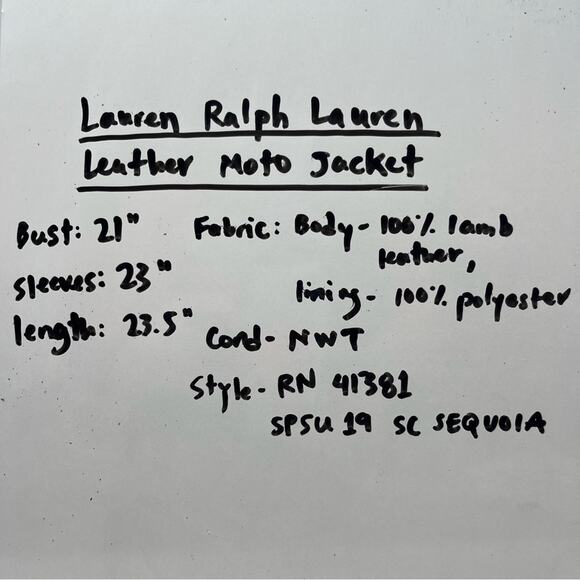 Lauren Ralph Lauren
Leather Moto Jacket
Bust: 21"
sleeves: 23"
length: 23.5"
Fabric: Body - 100% lamb
leather,
lining - 100% polyester
Cond - NWT
Style - RN 41381
SPSU 19 SC SEQUOIA